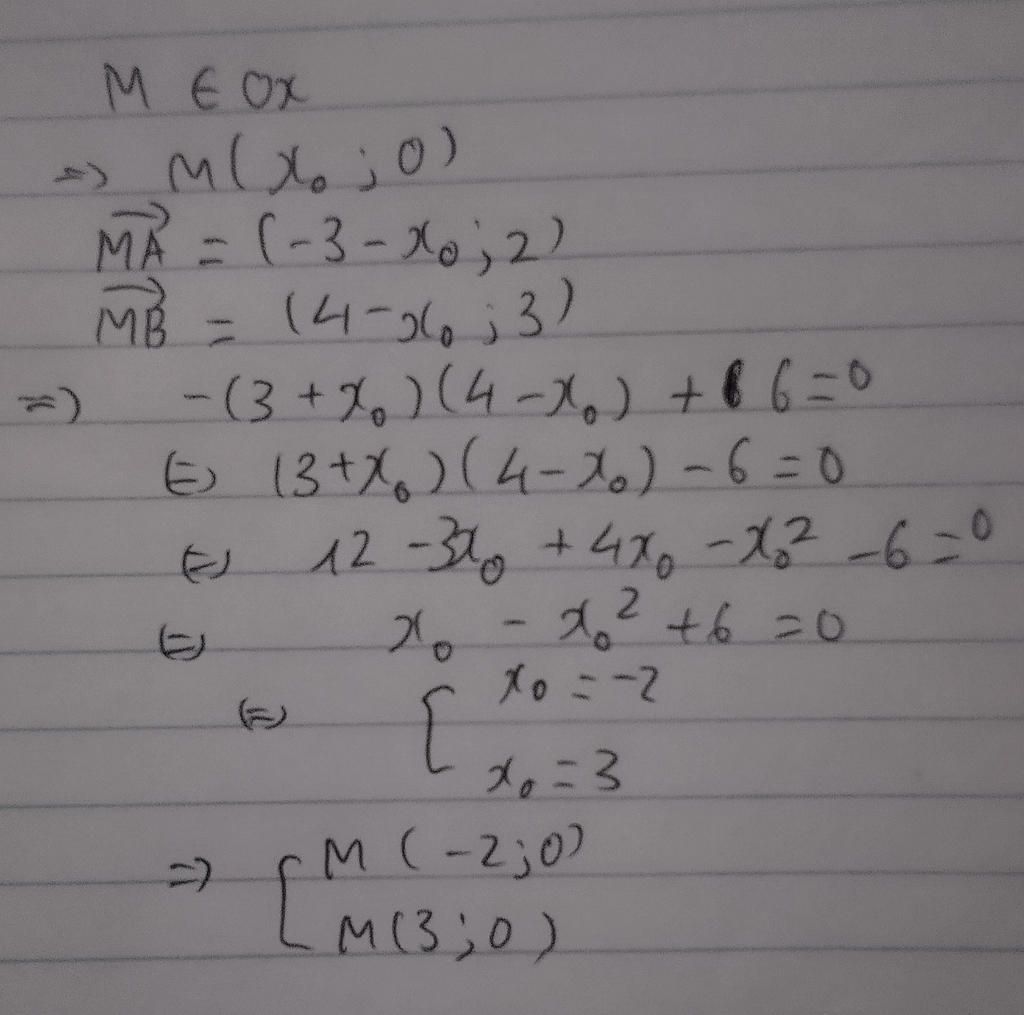 M ∈ Ox
=> M(x₀ ; 0)
$\overrightarrow{MA}$ = (-3 - x₀ ; 2)
$\overrightarrow{MB}$ = (4 - x₀ ; 3)
=> -(3 + x₀)(4 - x₀) + 6 = 0
⇔ (3 + x₀)(4 - x₀) - 6 = 0
⇔ 12 - 3x₀ + 4x₀ - x₀² - 6 = 0
⇔ x₀ - x₀² + 6 = 0
⇔ [ x₀ = -2
x₀ = 3
=> [ M(-2 ; 0)
M(3 ; 0)